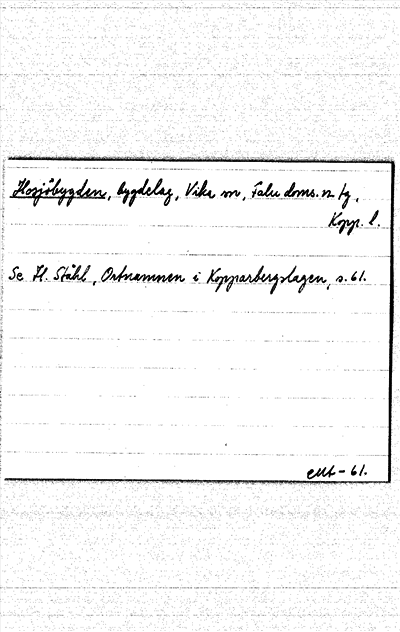 Hosjöbygden, bygdelag, Vika sn, Falu doms. n tg,
Kopp. l.
Se H. Ståhl, Ortnamnen i Kopparbergslagen, s. 61.
-61.